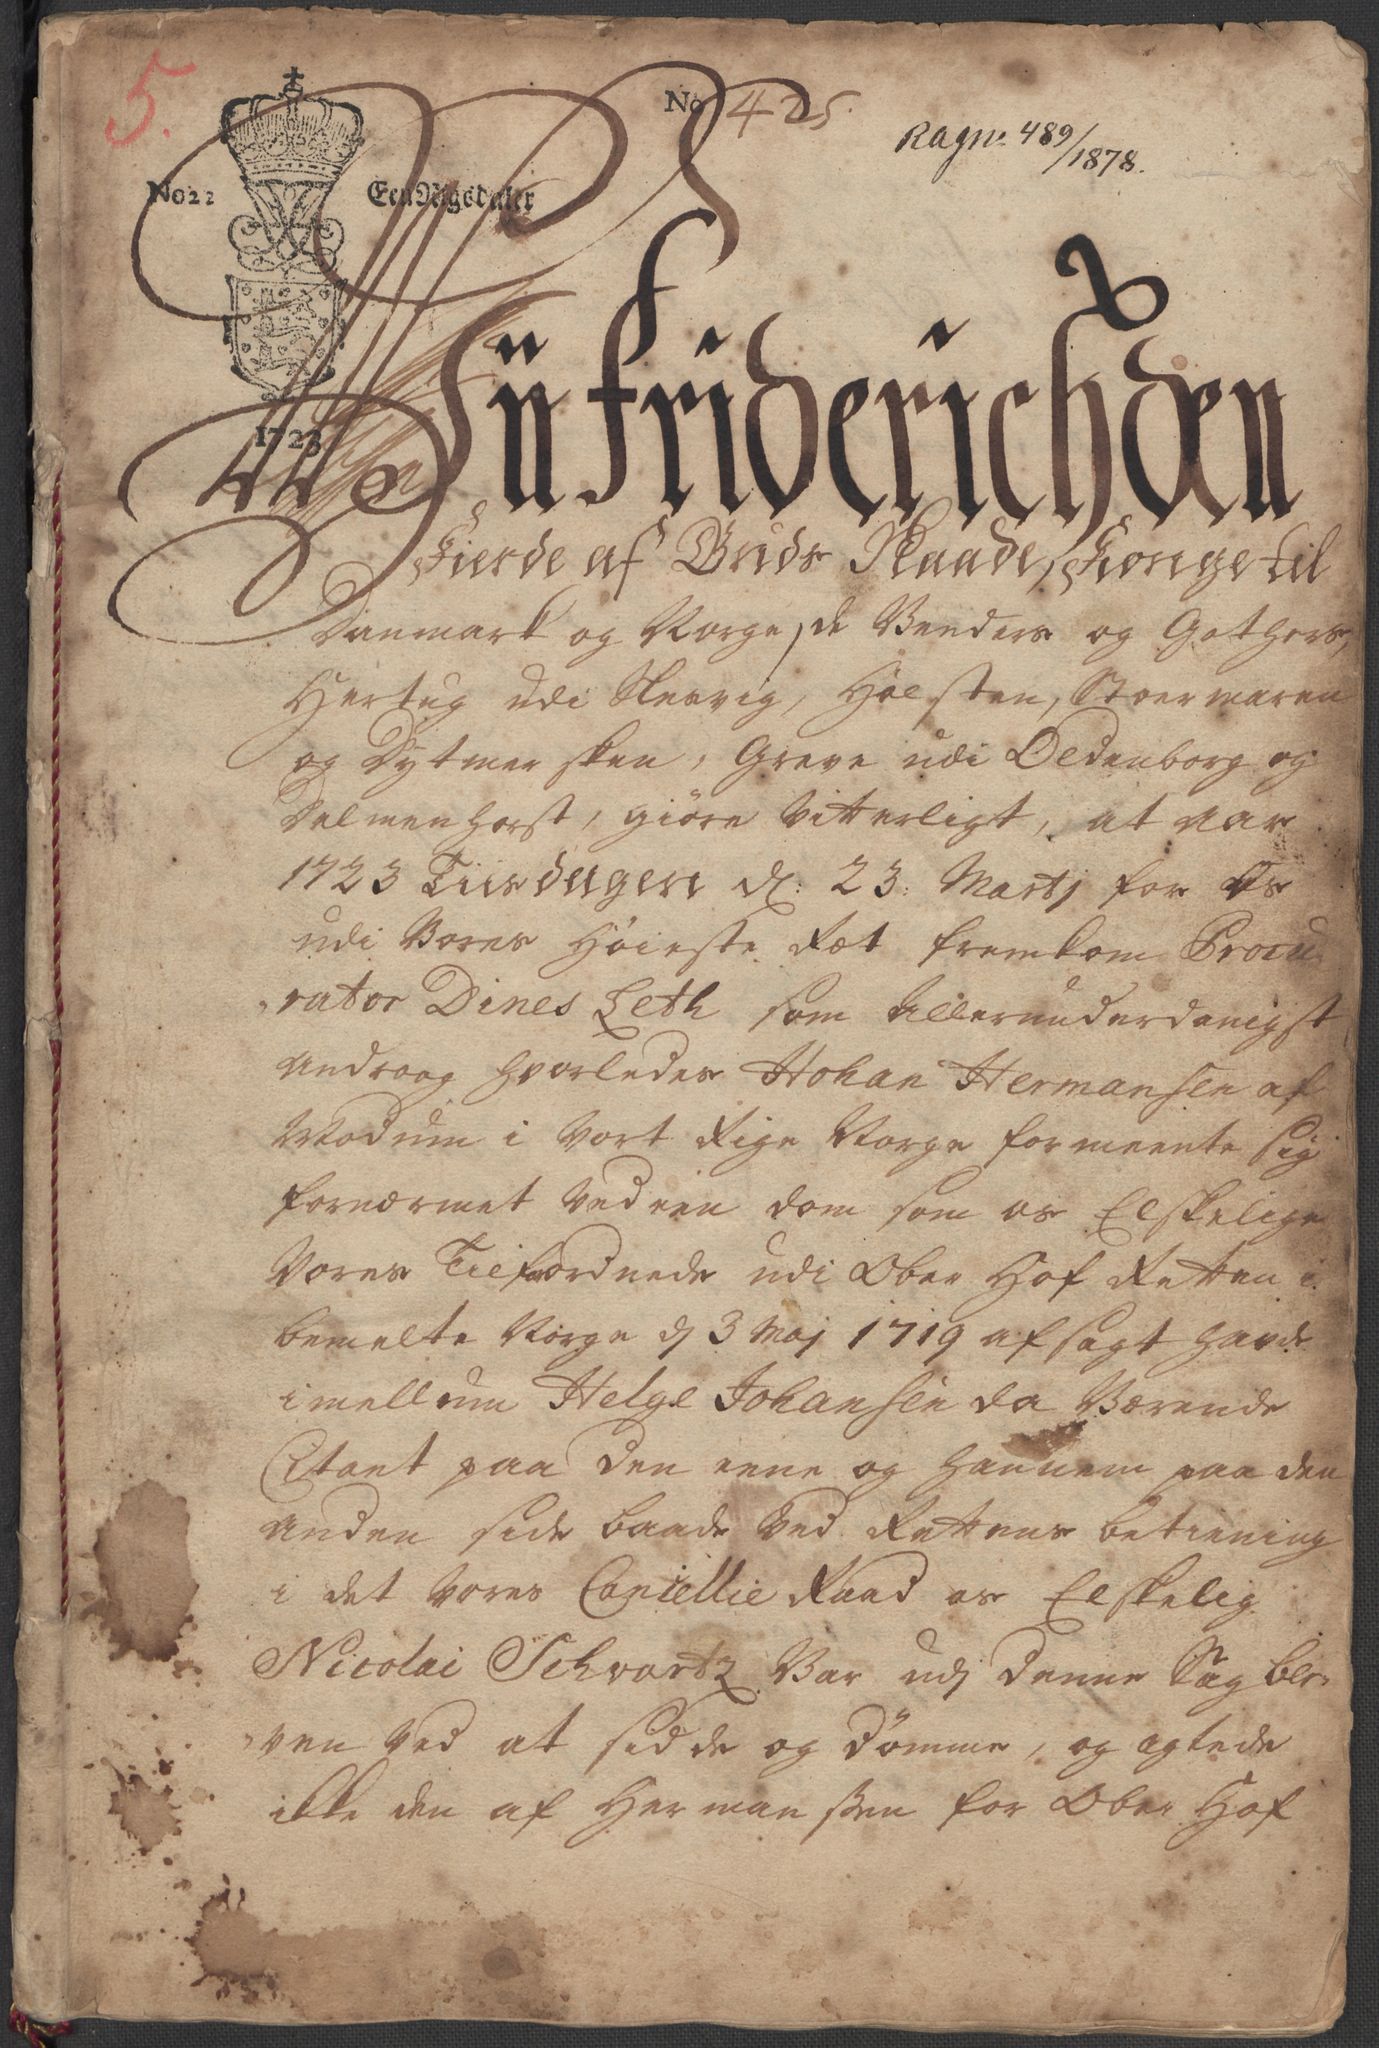 5.
No 425.
Ragn. 489/1878.
No 22 Een Rigsdaler
1723
Wii Friderich den
Fierde af Guds Naade, Konge til
Danmark og Norge, de Venders og Gothers,
Hertug udi Slesvig, Holsten, Stoermaren
og Dytmersken, Greve udi Oldenborg og
Delmenhorst, giöre vitterligt, at aar
1723 Tiisdagen d: 23: Martj for Os
udi Vores Höieste Ræt fremkom Procu-
rator Dines Leth som allerunderdanigst
androg hvorledes Hohan Hermansen af
Modum i vort Rige Norge formeente sig
fornærmet ved een dom som os Elskelige
Vores Tilforordnede udi Ober Hof Retten i
bemelte Norge d 3 Maj 1719 afsagt hafde
imellum Helge Johansen da Værende
Citant paa den eene og hannem paa den
anden side baade ved Rettens betiening
i det vores Cancellie Raad os Elskelig
Nicolai Schvartz Var udj denne Sag ble-
ven ved at sidde og dömme, og agtede
ikke den af Hermanssen for Ober Hof